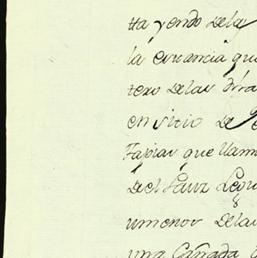 ttayendo delas
la estancia que
tero delas dra
en sitio de
Tapias que llam
Del Sauz Legu
umenor delas
una Cañada